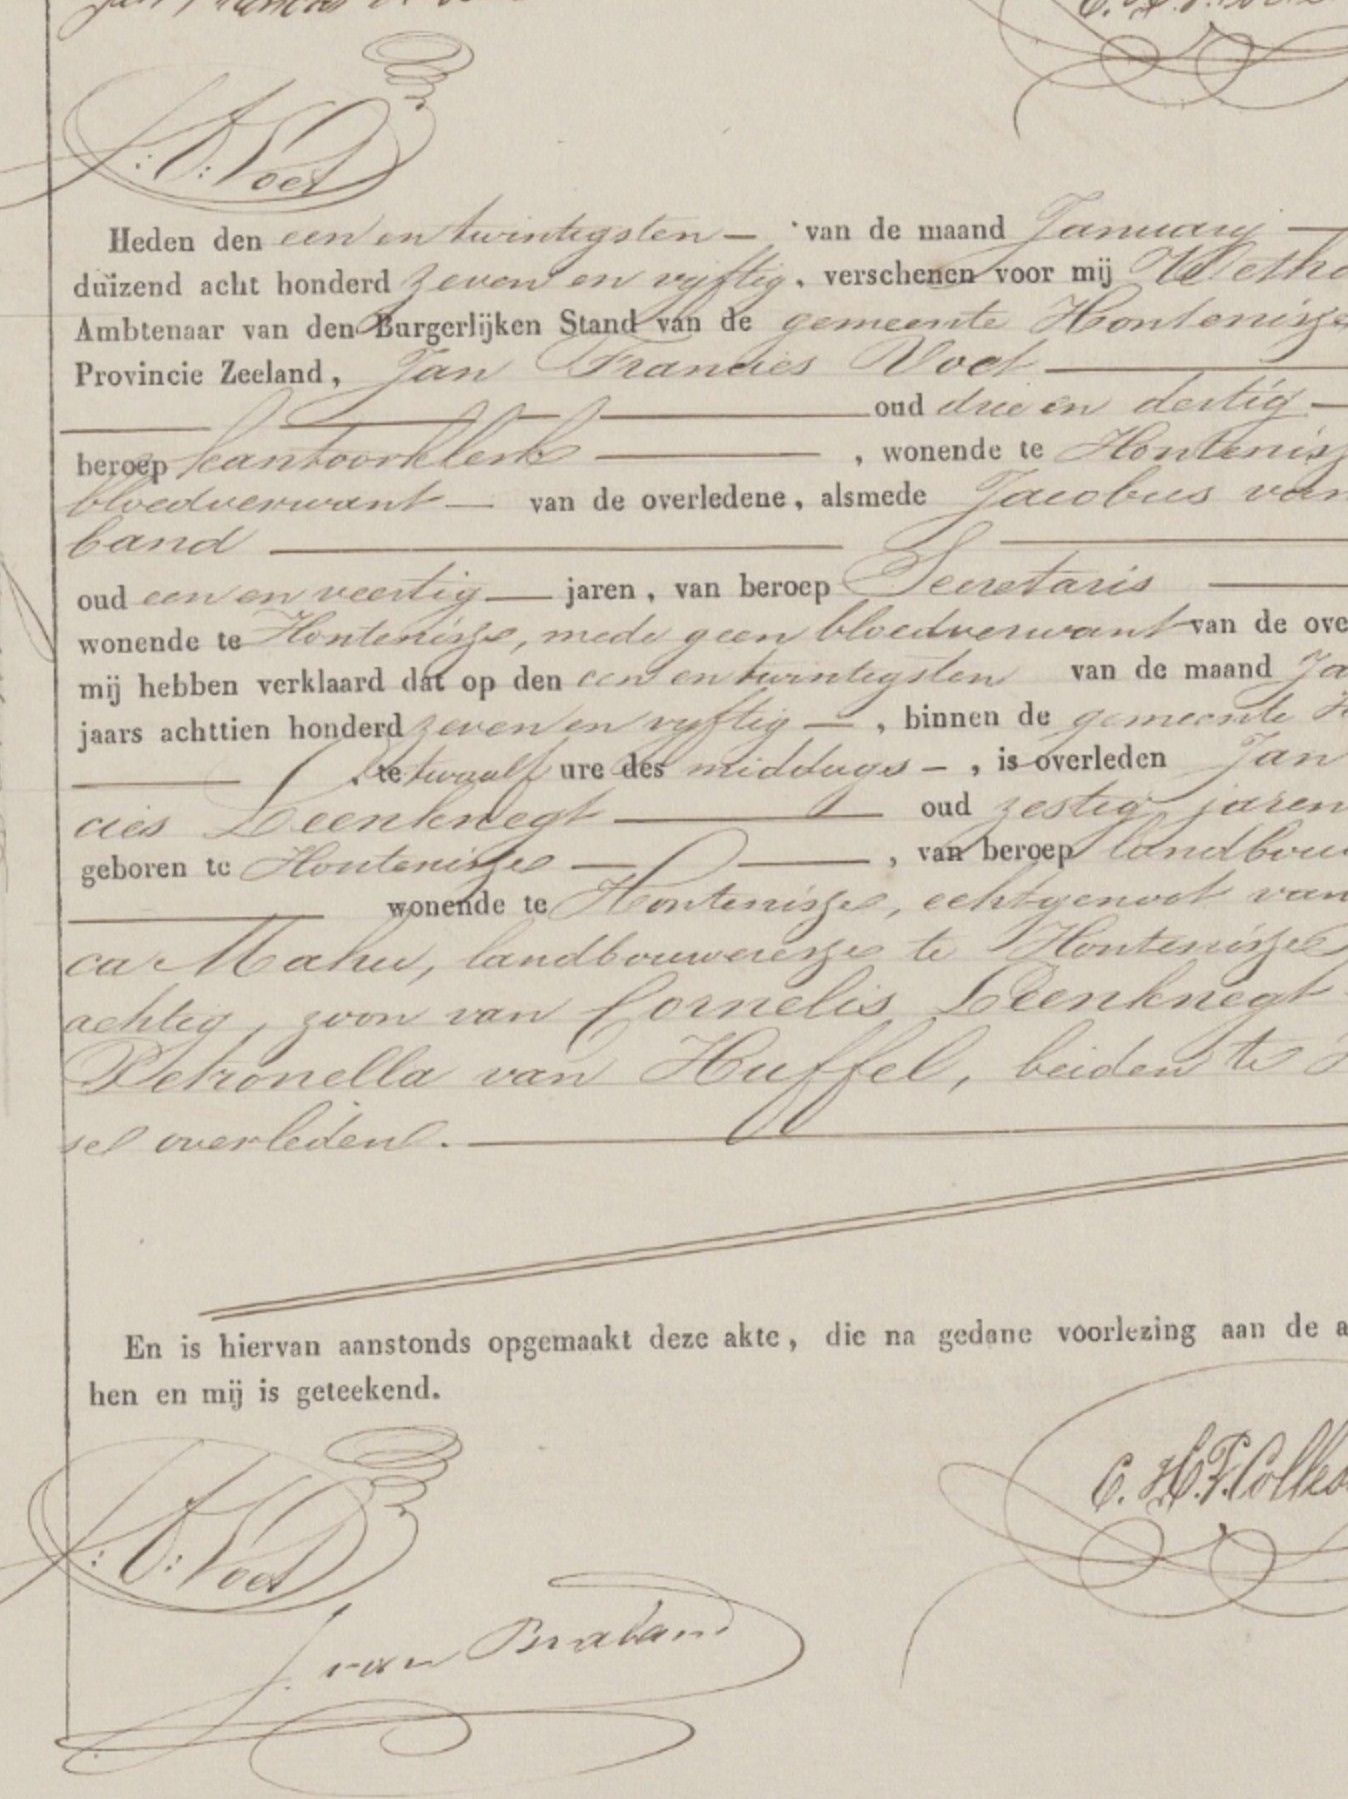 J: F: Voet
Heden den een en twintigsten — van de maand January —
duizend acht honderd zeven en vyftig, verschenen voor mij Wetho
Ambtenaar van den Burgerlijken Stand van de gemeente Hontenisse
Provincie Zeeland, Jan Francies Voet
oud drie en dertig —
beroep kantoorklerk —, wonende te Hontenis
bloedverwant — van de overledene, alsmede Jacobus van
band
oud een en veertig — jaren, van beroep Secretaris —
wonende te Hontenisse, mede geen bloedverwant van de ove
mij hebben verklaard dat op den een en twintigsten van de maand Ja
jaars achttien honderd zeven en vyftig —, binnen de gemeente H
te twaalf ure des middags —, is overleden Jan
cies Leenknegt — oud zestig jaren
geboren te Hontenisse —, van beroep landbou
wonende te Hontenisse, echtgenoot van
ca Mahu, landbouweresse te Hontenisse
achtig, zoon van Cornelis Leenknegt
Petronella van Huffel, beiden te H
sel overleden. —
En is hiervan aanstonds opgemaakt deze akte, die na gedane voorlezing aan de a
hen en mij is geteekend.
C. H. F. Colles
J: F: Voet
J. van Braband